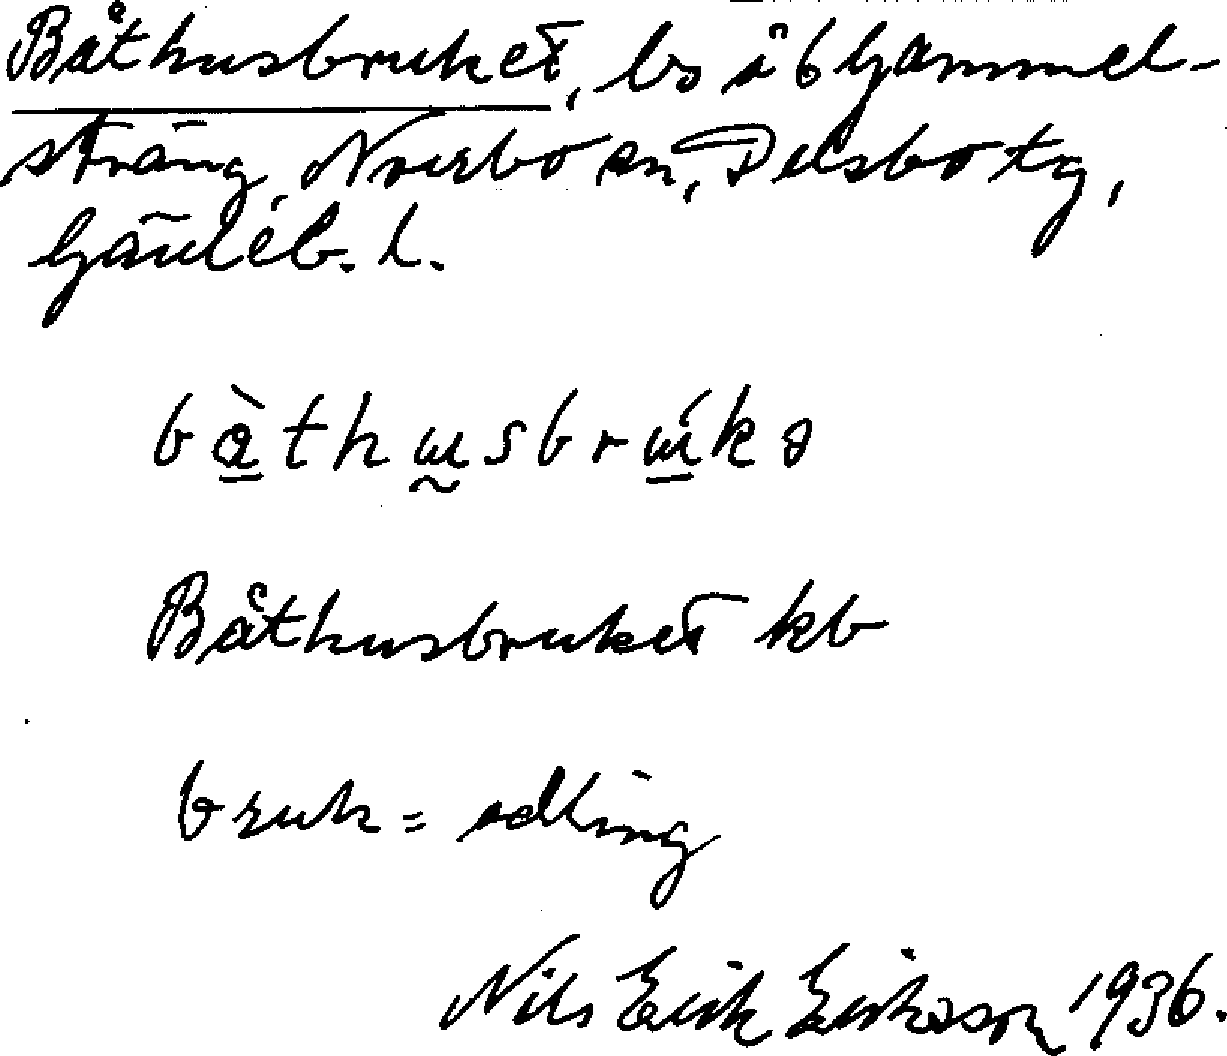 Båthusbruket, ls å b Gammel-
sträng, Norrbo sn, Delsbo tg,
Gävleb. l.
båthusbrukə
Båthusbruket kb
bruk = odling
Nils Erik Eriksson 1936.